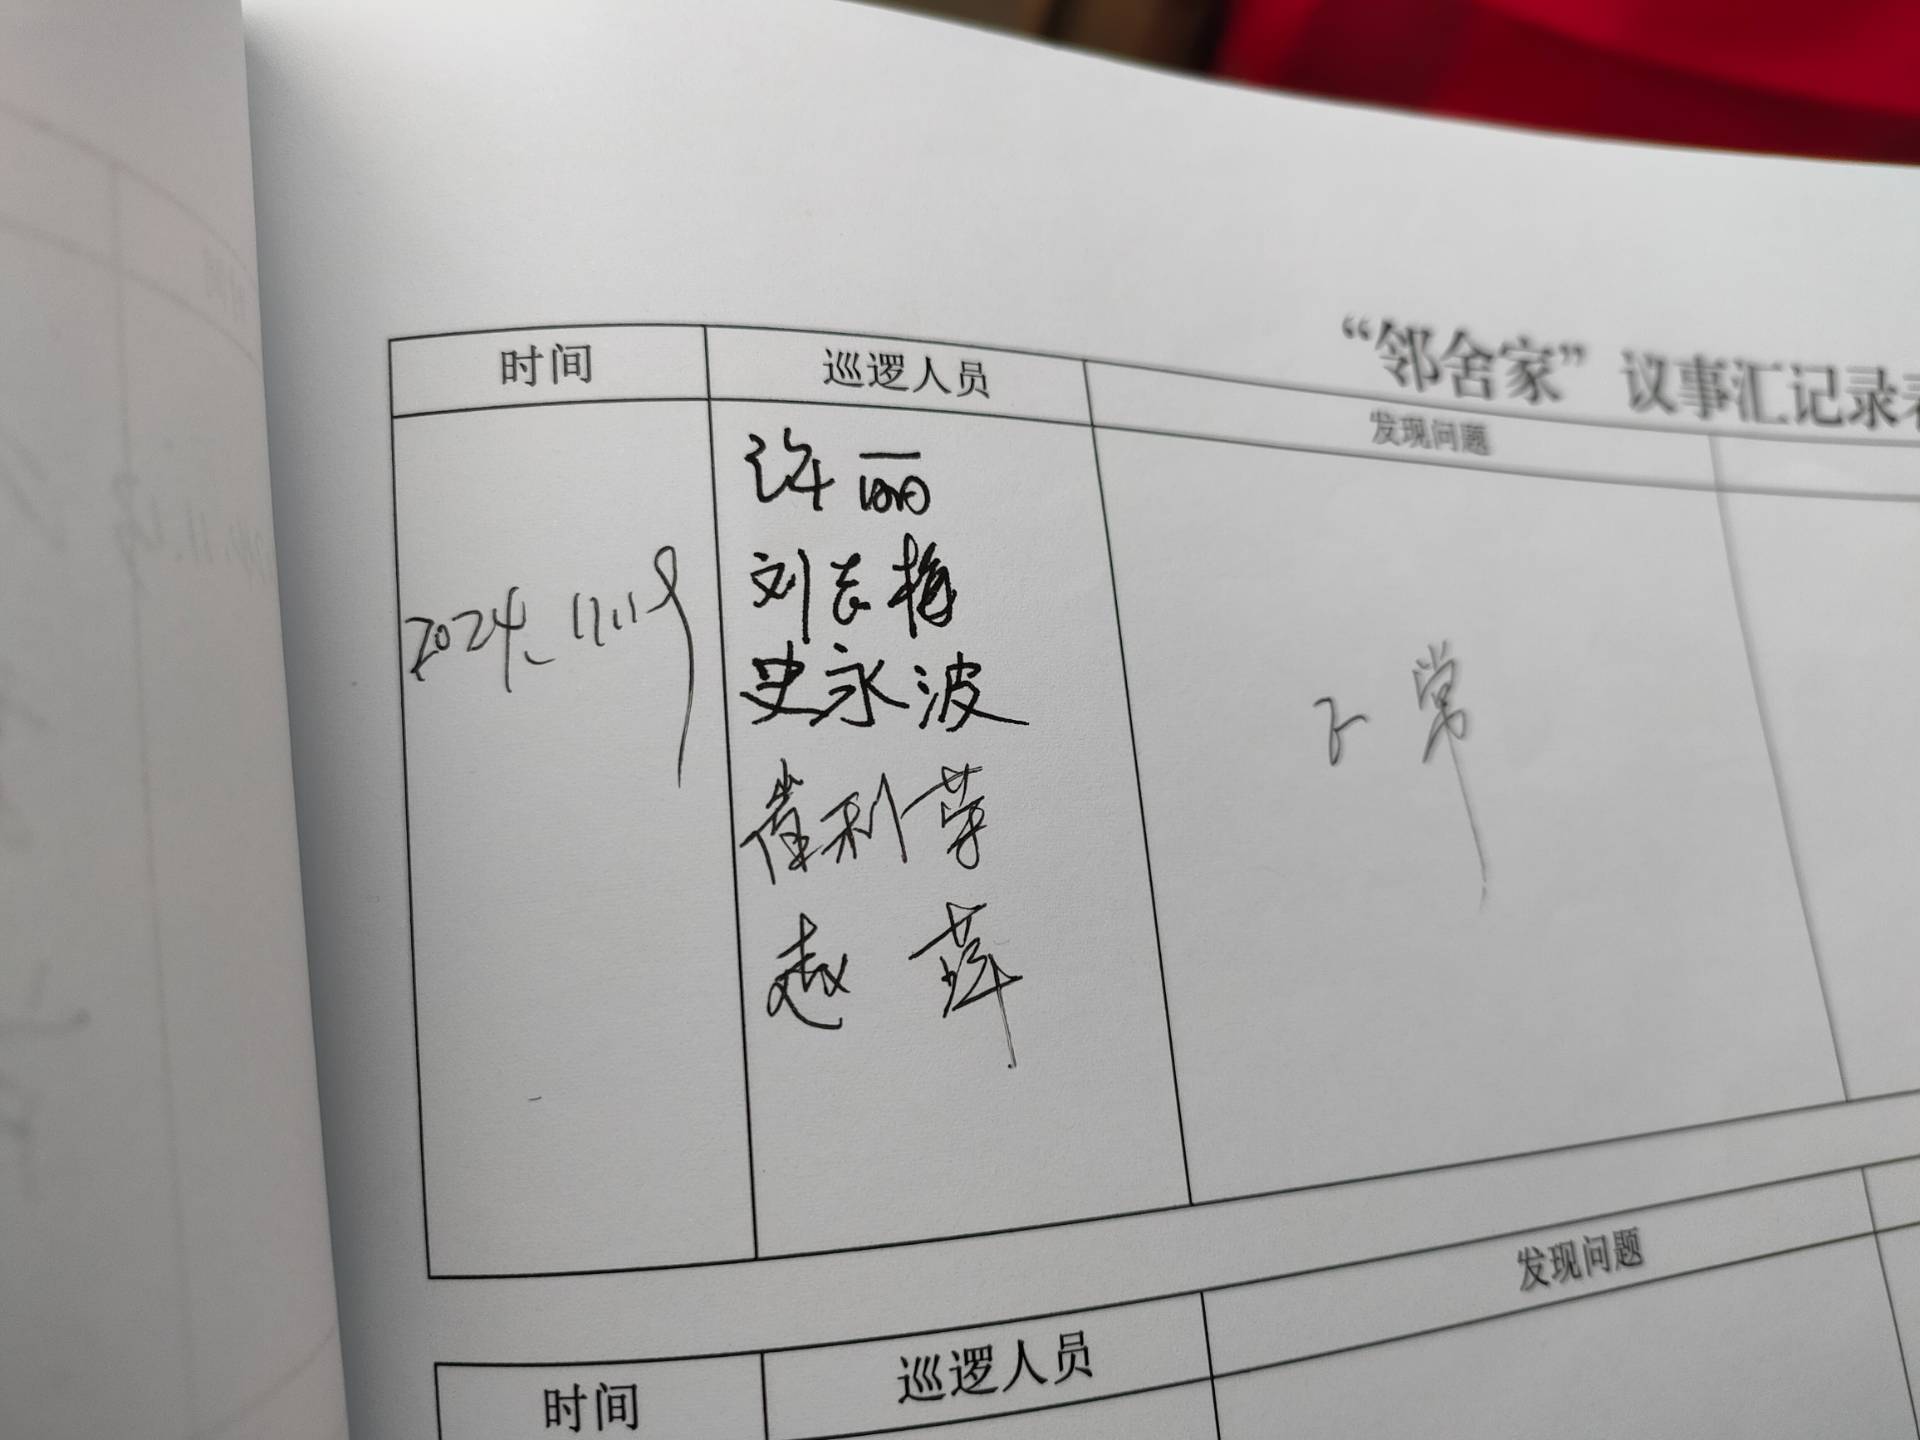 “邻舍家”议事汇记录表
时间 巡逻人员 发现问题
2024.11.19
许丽
刘长梅
史永波
崔利荣
赵萍
正常
时间 巡逻人员 发现问题